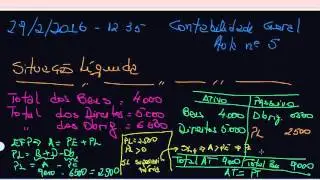 29/2/2016 - 12:35 Contabilidade Geral
Aula nº 5
Situação Líquida
Total dos Bens = 4000
Total dos Direitos = 5000
" dos Obrig = 6500
ATIVO Passivo
Bens 4000 Obrig 6500
Direitos 5000 PL 2500
Total AT 9000 9000
AT = PT
EFP => A = PE + PL
PL = B + D - Ob
PL = A - PE
9000 - 6500 = 2500
PL = 2500
PL > 0